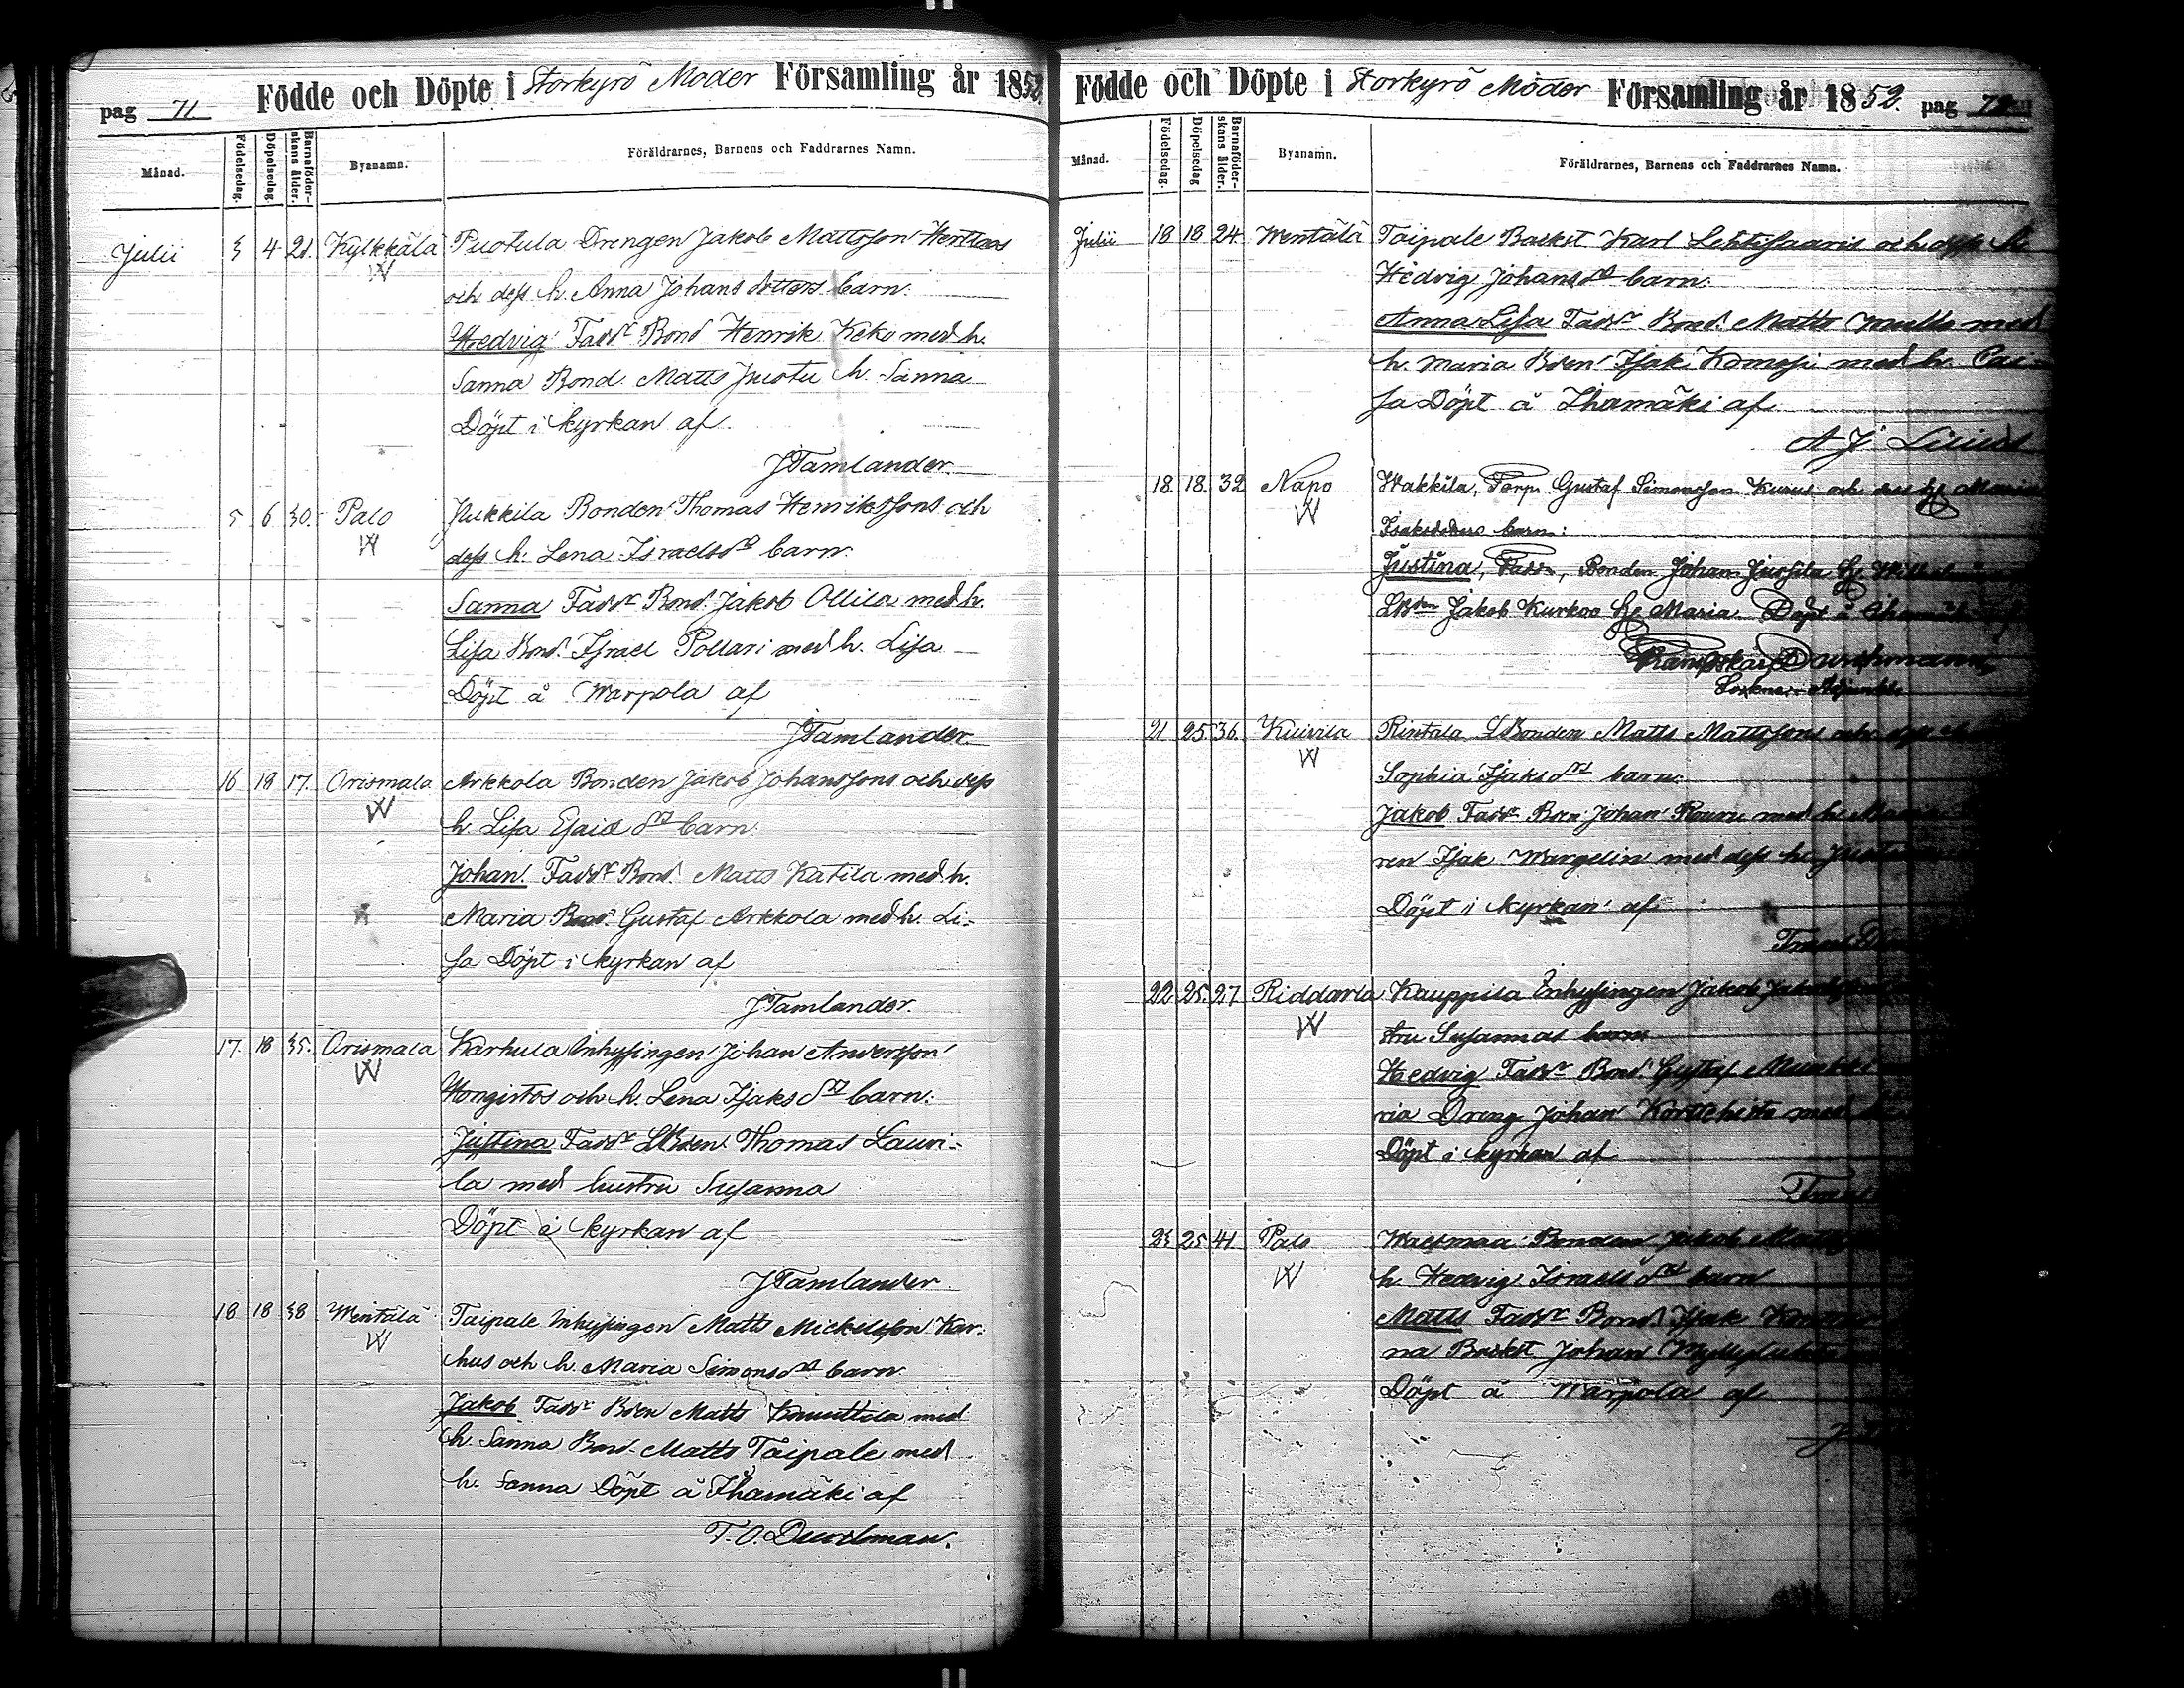 pag 71 Födde och Döpte i Storkyrö Moder Församling år 1852.
Månad. Födelsedag. Döpelsedag. Barnaföderskans ålder. Byanamn. Föräldrarnes, Barnens och Faddrarnes Namn.
Julii 3 4 21. Kylkkälä Puotula Drengen Jakob Mattsson
W och dess h. Anna Johans dotters barn.
Hedvig Fadd:r Bond Henrik Keko med h.
Sanna Bond. Matts Juotu h. Sanna
Döpt i kyrkan af
J Tamlander.
5 6 30. Palo Jukkila Bonden Thomas Henrikssons och
W dess h. Lena Israelsd:rs barn.
Sanna Fadd:r Bond. Jakob Ollila med h.
Lisa Bond. Israel Pollari med h. Lisa
Döpt å Warpola af
J Tamlander.
16 18 17. Orismala Arkkola Bonden Jakob Johanssons och dess
W h. Lisa Esais d:rs barn.
Johan. Fadd:r Bond. Matts Katila med h.
Maria Bond. Gustaf Arkkola med h. Li-
sa Döpt i kyrkan af
J Tamlander.
17. 18 35. Orismala Karhula Inhysingen Johan Andersson
W Hongistos och h. Lena Isaks d:rs barn.
Justina Fadd:r LBden. Thomas Lauri-
la med hustru Susanna
Döpt i kyrkan af
J Tamlander
18 18 38 Wentälä Taipale Inhysingen Matts Mickelsson Kar-
W hus och h. Maria Simonsd:rs barn.
Jakob Fadd:r Bden Matts Knuuttila med
h. Sanna Bond. Matts Taipale med
h. Sanna Döpt å Ihamäki af
T. O. Duurhman.
Födde och Döpte i Storkyrö Moder Församling år 1852. pag 72
Månad. Födelsedag. Döpelsedag Barnaföderskans ålder. Byanamn. Föräldrarnes, Barnens och Faddrarnes Namn.
Julii 18 18 24 Wentälä Taipale Backst Karl Lehtisaaris och dess h.
Hedvig Johansd:rs barn.
Anna Lisa Fadd:r Bond. Matts Mullo med
h. Maria Bden Isak Komsi med h. Cai-
sa Döpt å Ihamäki af
A J
18. 18. 32 Napo Wakkila, Torp. Gustaf Simonsson Kurus och Maria
W Isaksdotters barn:
Justina, Fadd:r, Bonden Johan Jussila
LBden Jakob Kurkoo Maria Döpt å Ihamäki
Duurhmann
Sockne Adjunkt.
21 25. 36. Kuivila Rintala LBonden Matts Mattssons och dess
W Sophia Isaksd:rs barn:
Jakob Fadd:r Bden Johan Rouru med h.
ren Isak Wargelin med dess h.
Döpt i kyrkan af
22 25. 27 Riddarla Kauppila Inhysingen Jakob
W stru Susannas barn
Hedvig Fadd:r Bond. Gustaf
ria Dreng Johan med
Döpt i kyrkan af
23 25 41 Palo Waismaa Bonden Jakob
W h. Hedvig Israels d:rs barn
Matts Fadd:r Bond. Isak
na Backst Johan
Döpt å Warpola af
J